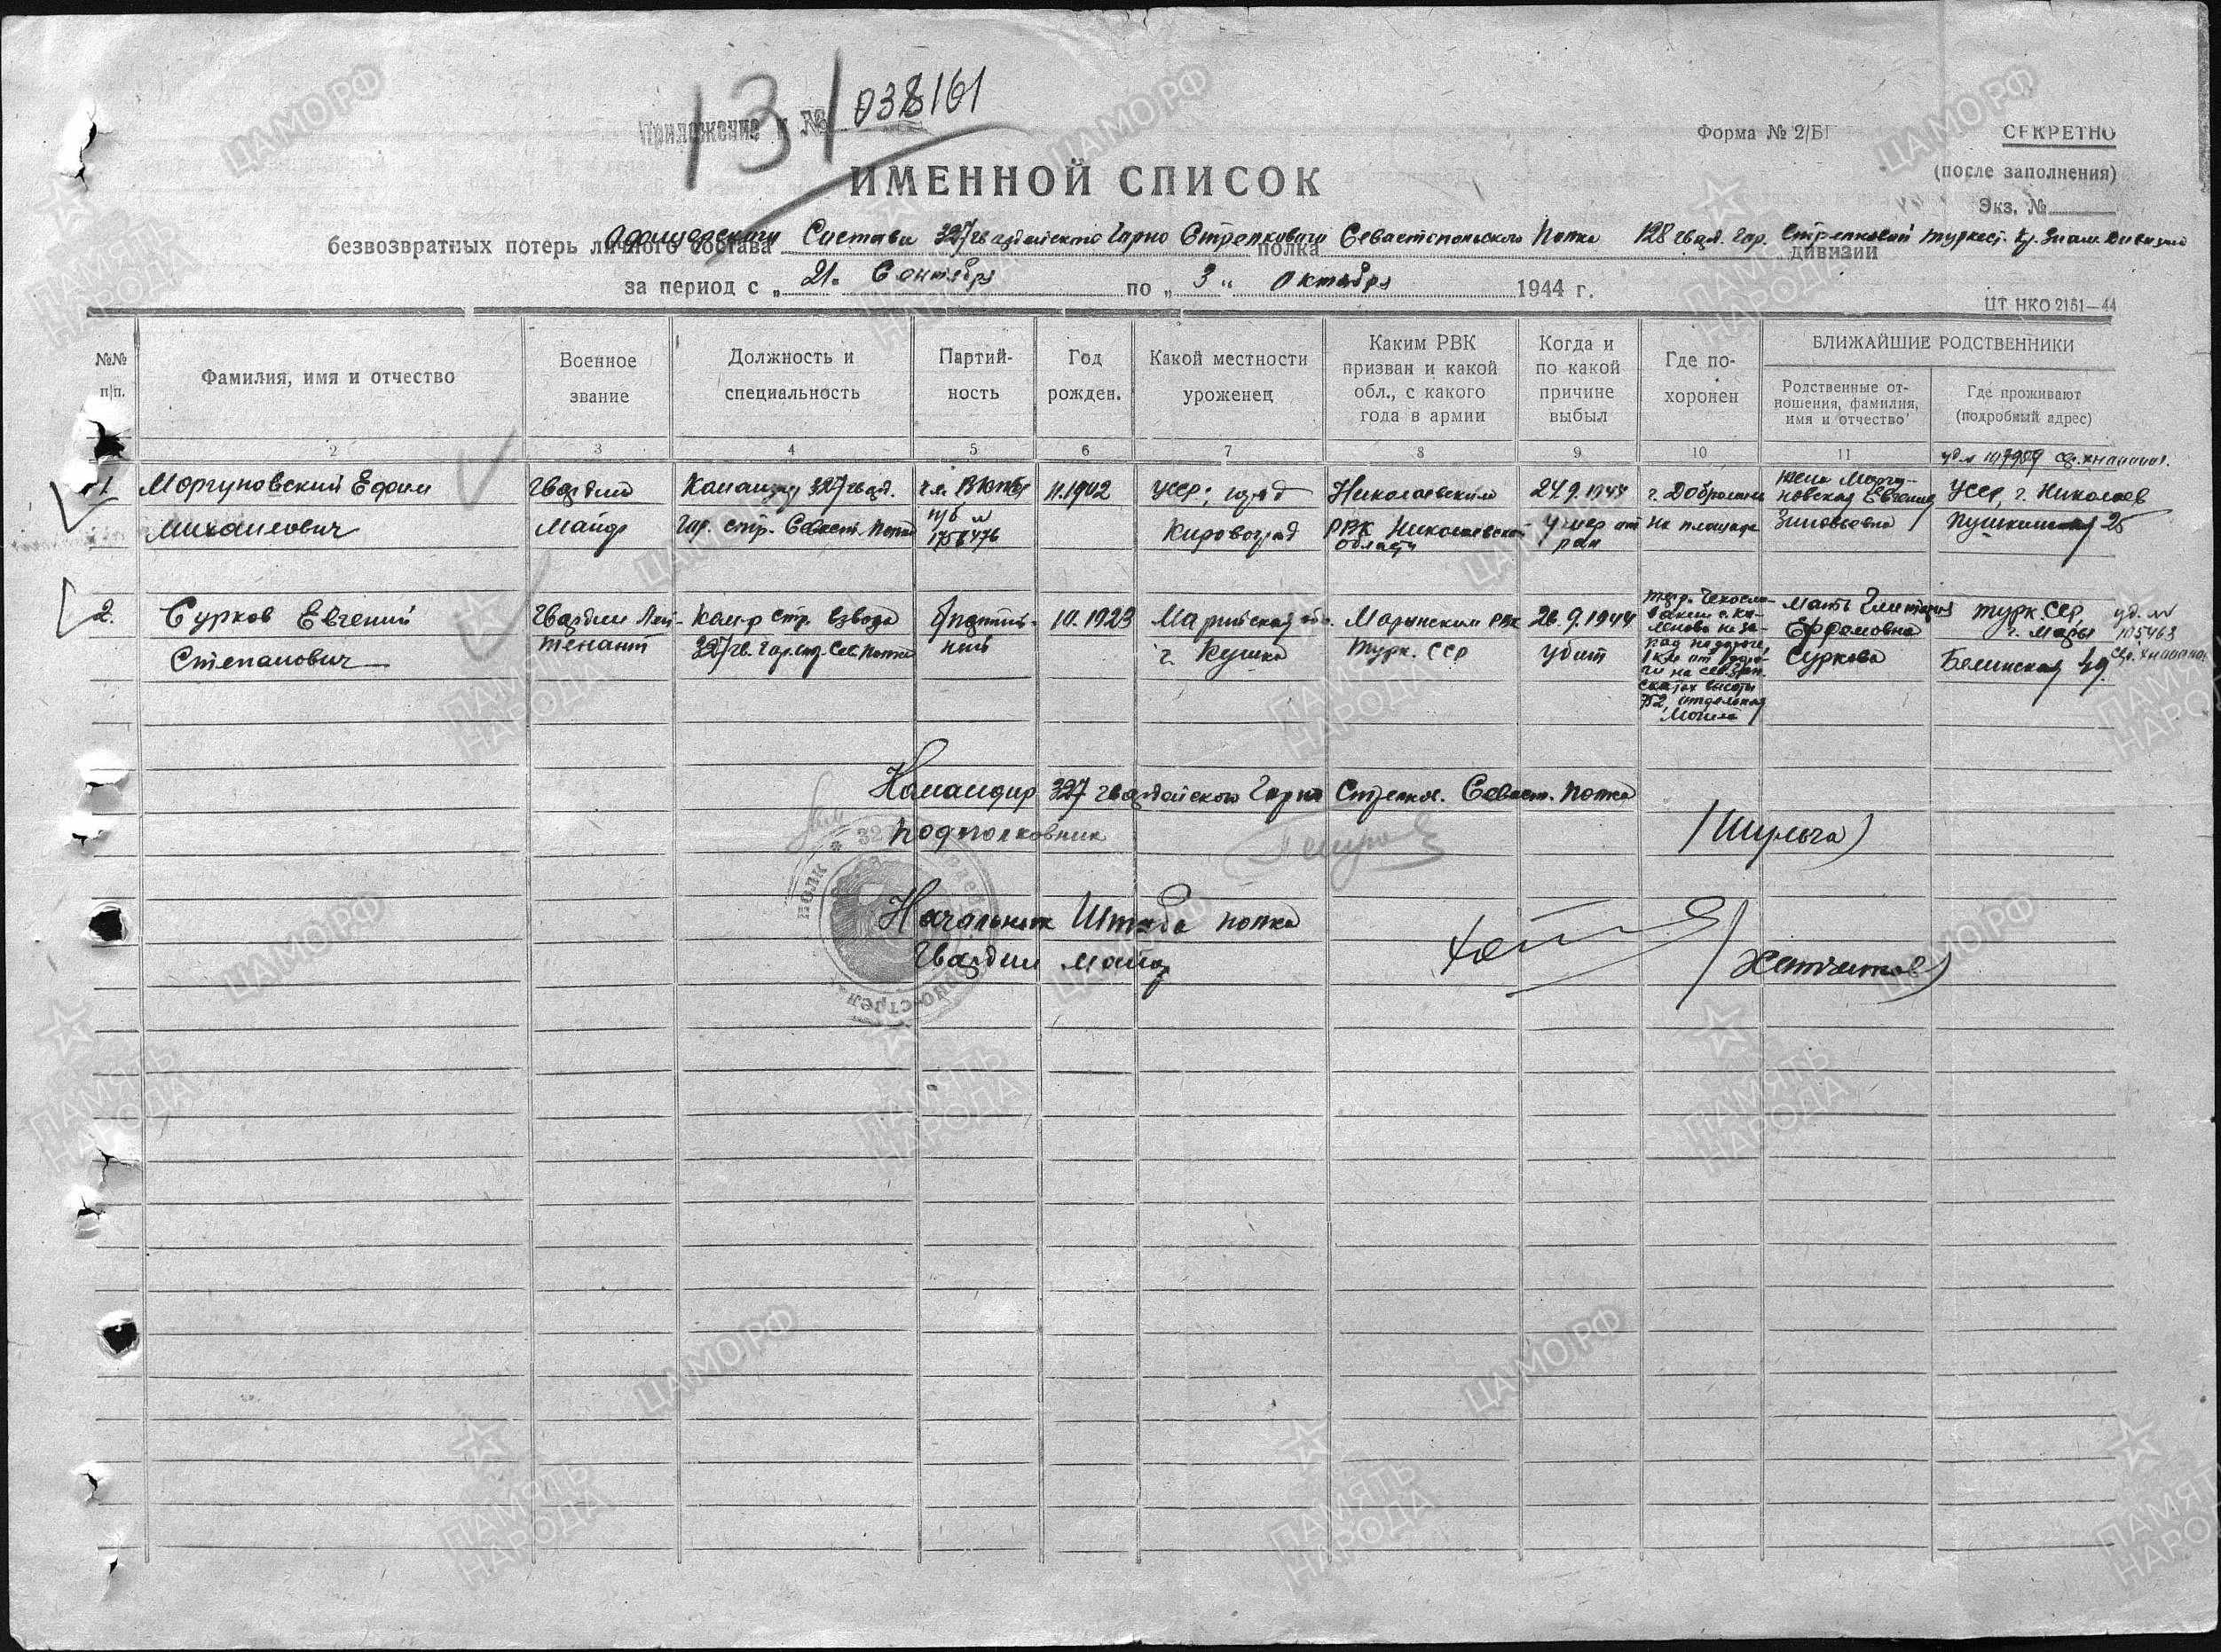 131
Приложение к № 038161
Форма № 2/БП
СЕКРЕТНО
(после заполнения)
Экз. №
ИМЕННОЙ СПИСОК
безвозвратных потерь личного состава офицерского Состава 327 гвардейского Горно Стрелкового Севастопольского Полка полка 128 гвард. Гор. Стрелковой Туркест. Кр. Знам. Дивизии дивизии
за период с „ 21 " Сентября по „ 3 " Октября 1944 г.
ЦТ НКО 2151—44
№№ п/п.
Фамилия, имя и отчество
Военное звание
Должность и специальность
Партий-
ность
Год рожден.
Какой местности уроженец
Каким РВК призван и какой обл., с какого года в армии
Когда и по какой причине выбыл
Где по-
хоронен
БЛИЖАЙШИЕ РОДСТВЕННИКИ
Родственные от-
ношения, фамилия,
имя и отчество
Где проживают
(подробный адрес)
2 3 4 5 6 7 8 9 10 11
1 Моргуновский Ефим
Михайлович
Гвардии
Майор
Командир 327 гвард.
Гор. стр. Севаст. Полка
чл. ВКП(б)
п/б №
1758476
11.1902
УССР, город
Кировоград
Николаевским
РВК Николаевской
области
24.9.1944
Умер от
ран
на площади
Жена Моргу-
новская Евгения
Зиновьевна
УССР, г. Николаев
Пушкинская 25
2. Сурков Евгений
Степанович
Гвардии Лей-
тенант
Ком-р стр. взвода
327 гв. Гор. стр. Сев. Полка
Б/партий-
ный
10.1923
Марыйская об.
г. Кушка
Марыйским РВК
Турк. ССР
26.9.1944
убит
тер. Чехосло-
вакии с. Ка-
леново на за-
пад по дороге,
1 км от доро-
ги на северн.
скатах высоты
752, отдельная
Могила
Мать
Ефремовна
Суркова
Турк. ССР,
г. Мары
уд. №
105463
Командир 327 гвардейского Горно Стрелков. Севаст. Полка
подполковник
/Шульга/
Начальник Штаба полка
Гвардии майор
ЦАМО.РФ
ПАМЯТЬ
НАРОДА